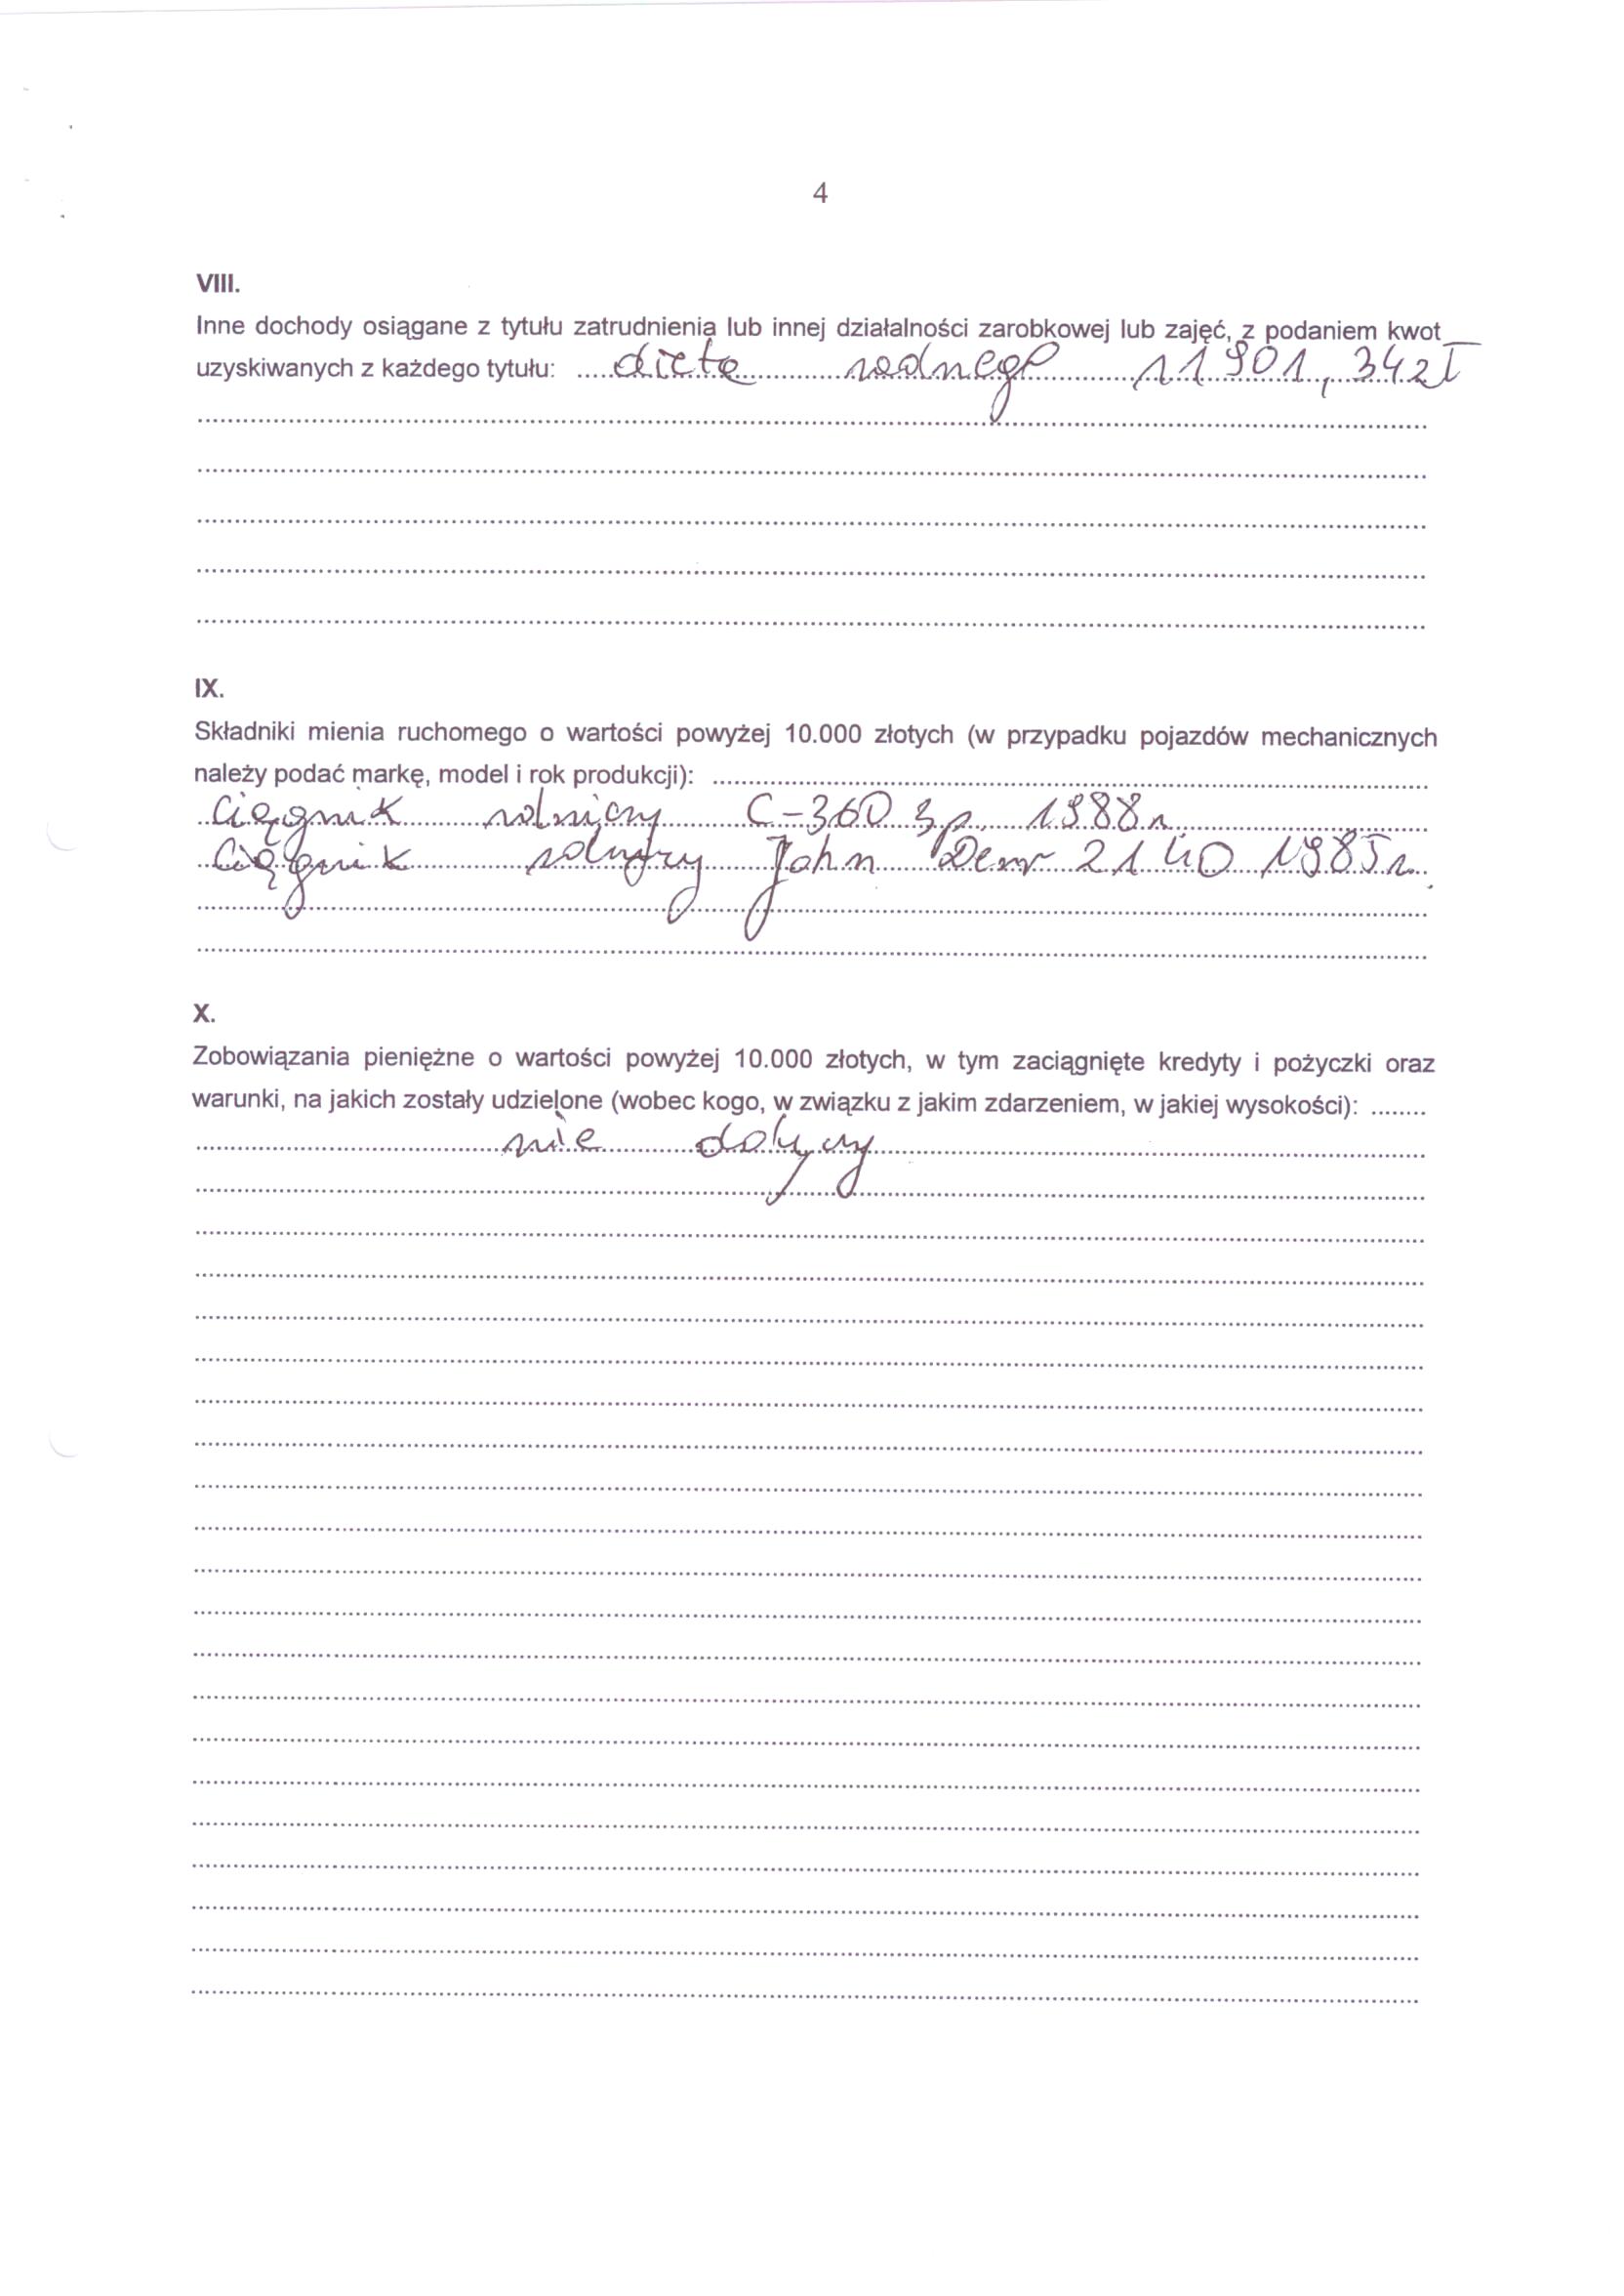 4
VIII.
Inne dochody osiągane z tytułu zatrudnienia lub innej działalności zarobkowej lub zajęć, z podaniem kwot
uzyskiwanych z każdego tytułu: dieta radnego 11901,34zł
IX.
Składniki mienia ruchomego o wartości powyżej 10.000 złotych (w przypadku pojazdów mechanicznych
należy podać markę, model i rok produkcji):
Ciągnik rolniczy C-360 3p. 1988r.
Ciągnik rolniczy John 2140 1985r.
X.
Zobowiązania pieniężne o wartości powyżej 10.000 złotych, w tym zaciągnięte kredyty i pożyczki oraz
warunki, na jakich zostały udzielone (wobec kogo, w związku z jakim zdarzeniem, w jakiej wysokości):
nie dotyczy